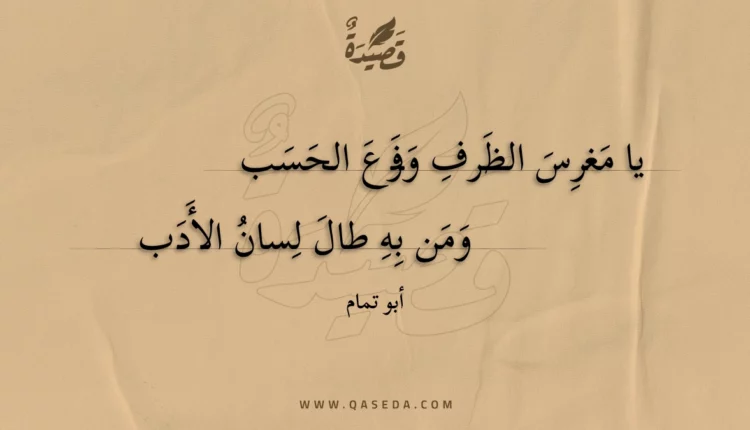 قَصِيدَةٌ
يا مَغرِسَ الظَرفِ وَفَرعَ الحَسَب
وَمَن بِهِ طالَ لِسانُ الأَدَب
أبو تمام
WWW.QASEDA.COM